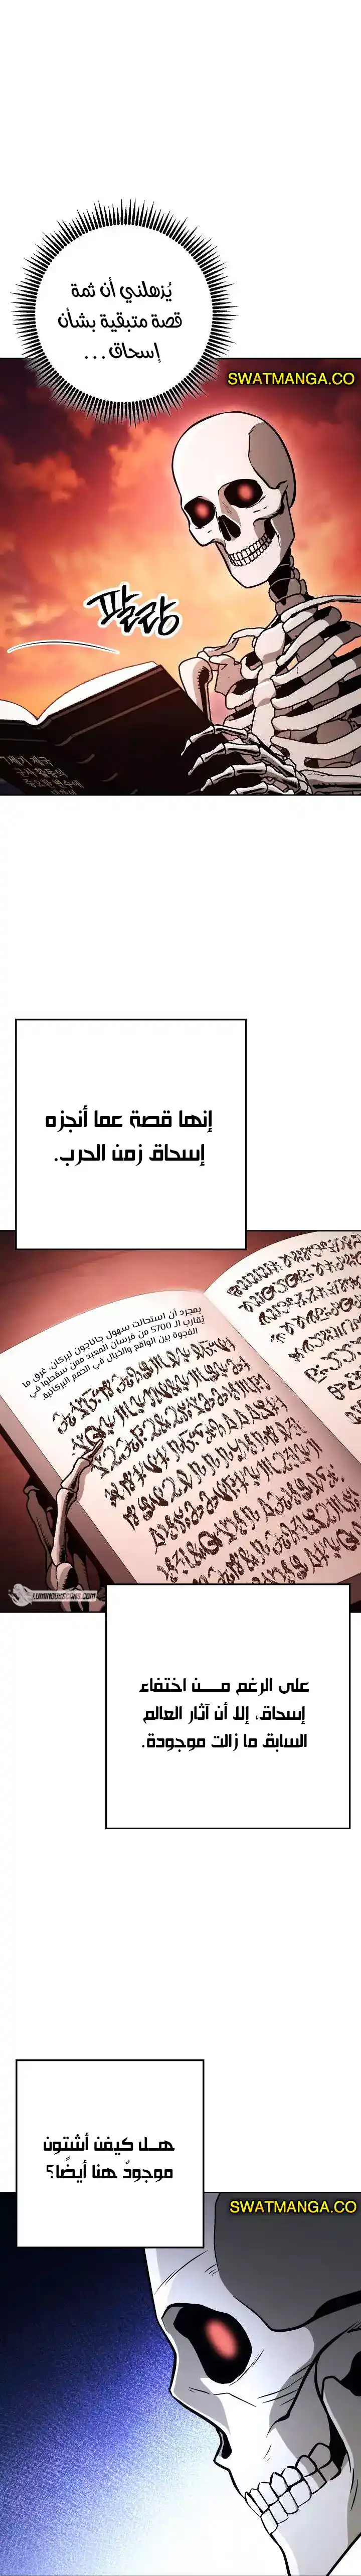 يُذهلني أن ثمة
قصة متبقية بشأن
إسحاق...
SWATMANGA.CO
파라랑
إنها قصة عما أنجزه
إسحاق زمن الحرب.
بمجرد أن استحالت سهول جاناجون لبركان، غرق ما
يُقارب الـ 5700 من فرسان المعبد ممن سقطوا في
الفجوة بين الواقع والخيال في الحمم البركانية
على الرغم مــن اختفاء
إسحاق، إلا أن آثار العالم
السابق ما زالت موجودة.
هــل كيفن أشتون
موجودٌ هنا أيضًا؟
SWATMANGA.CO